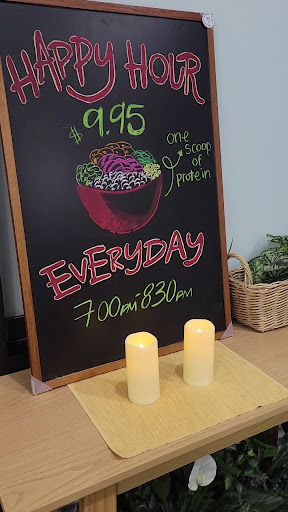 HAPPY HOUR
$9.95
one
scoop
of
protein
EVERYDAY
7:00pm-8:30pm